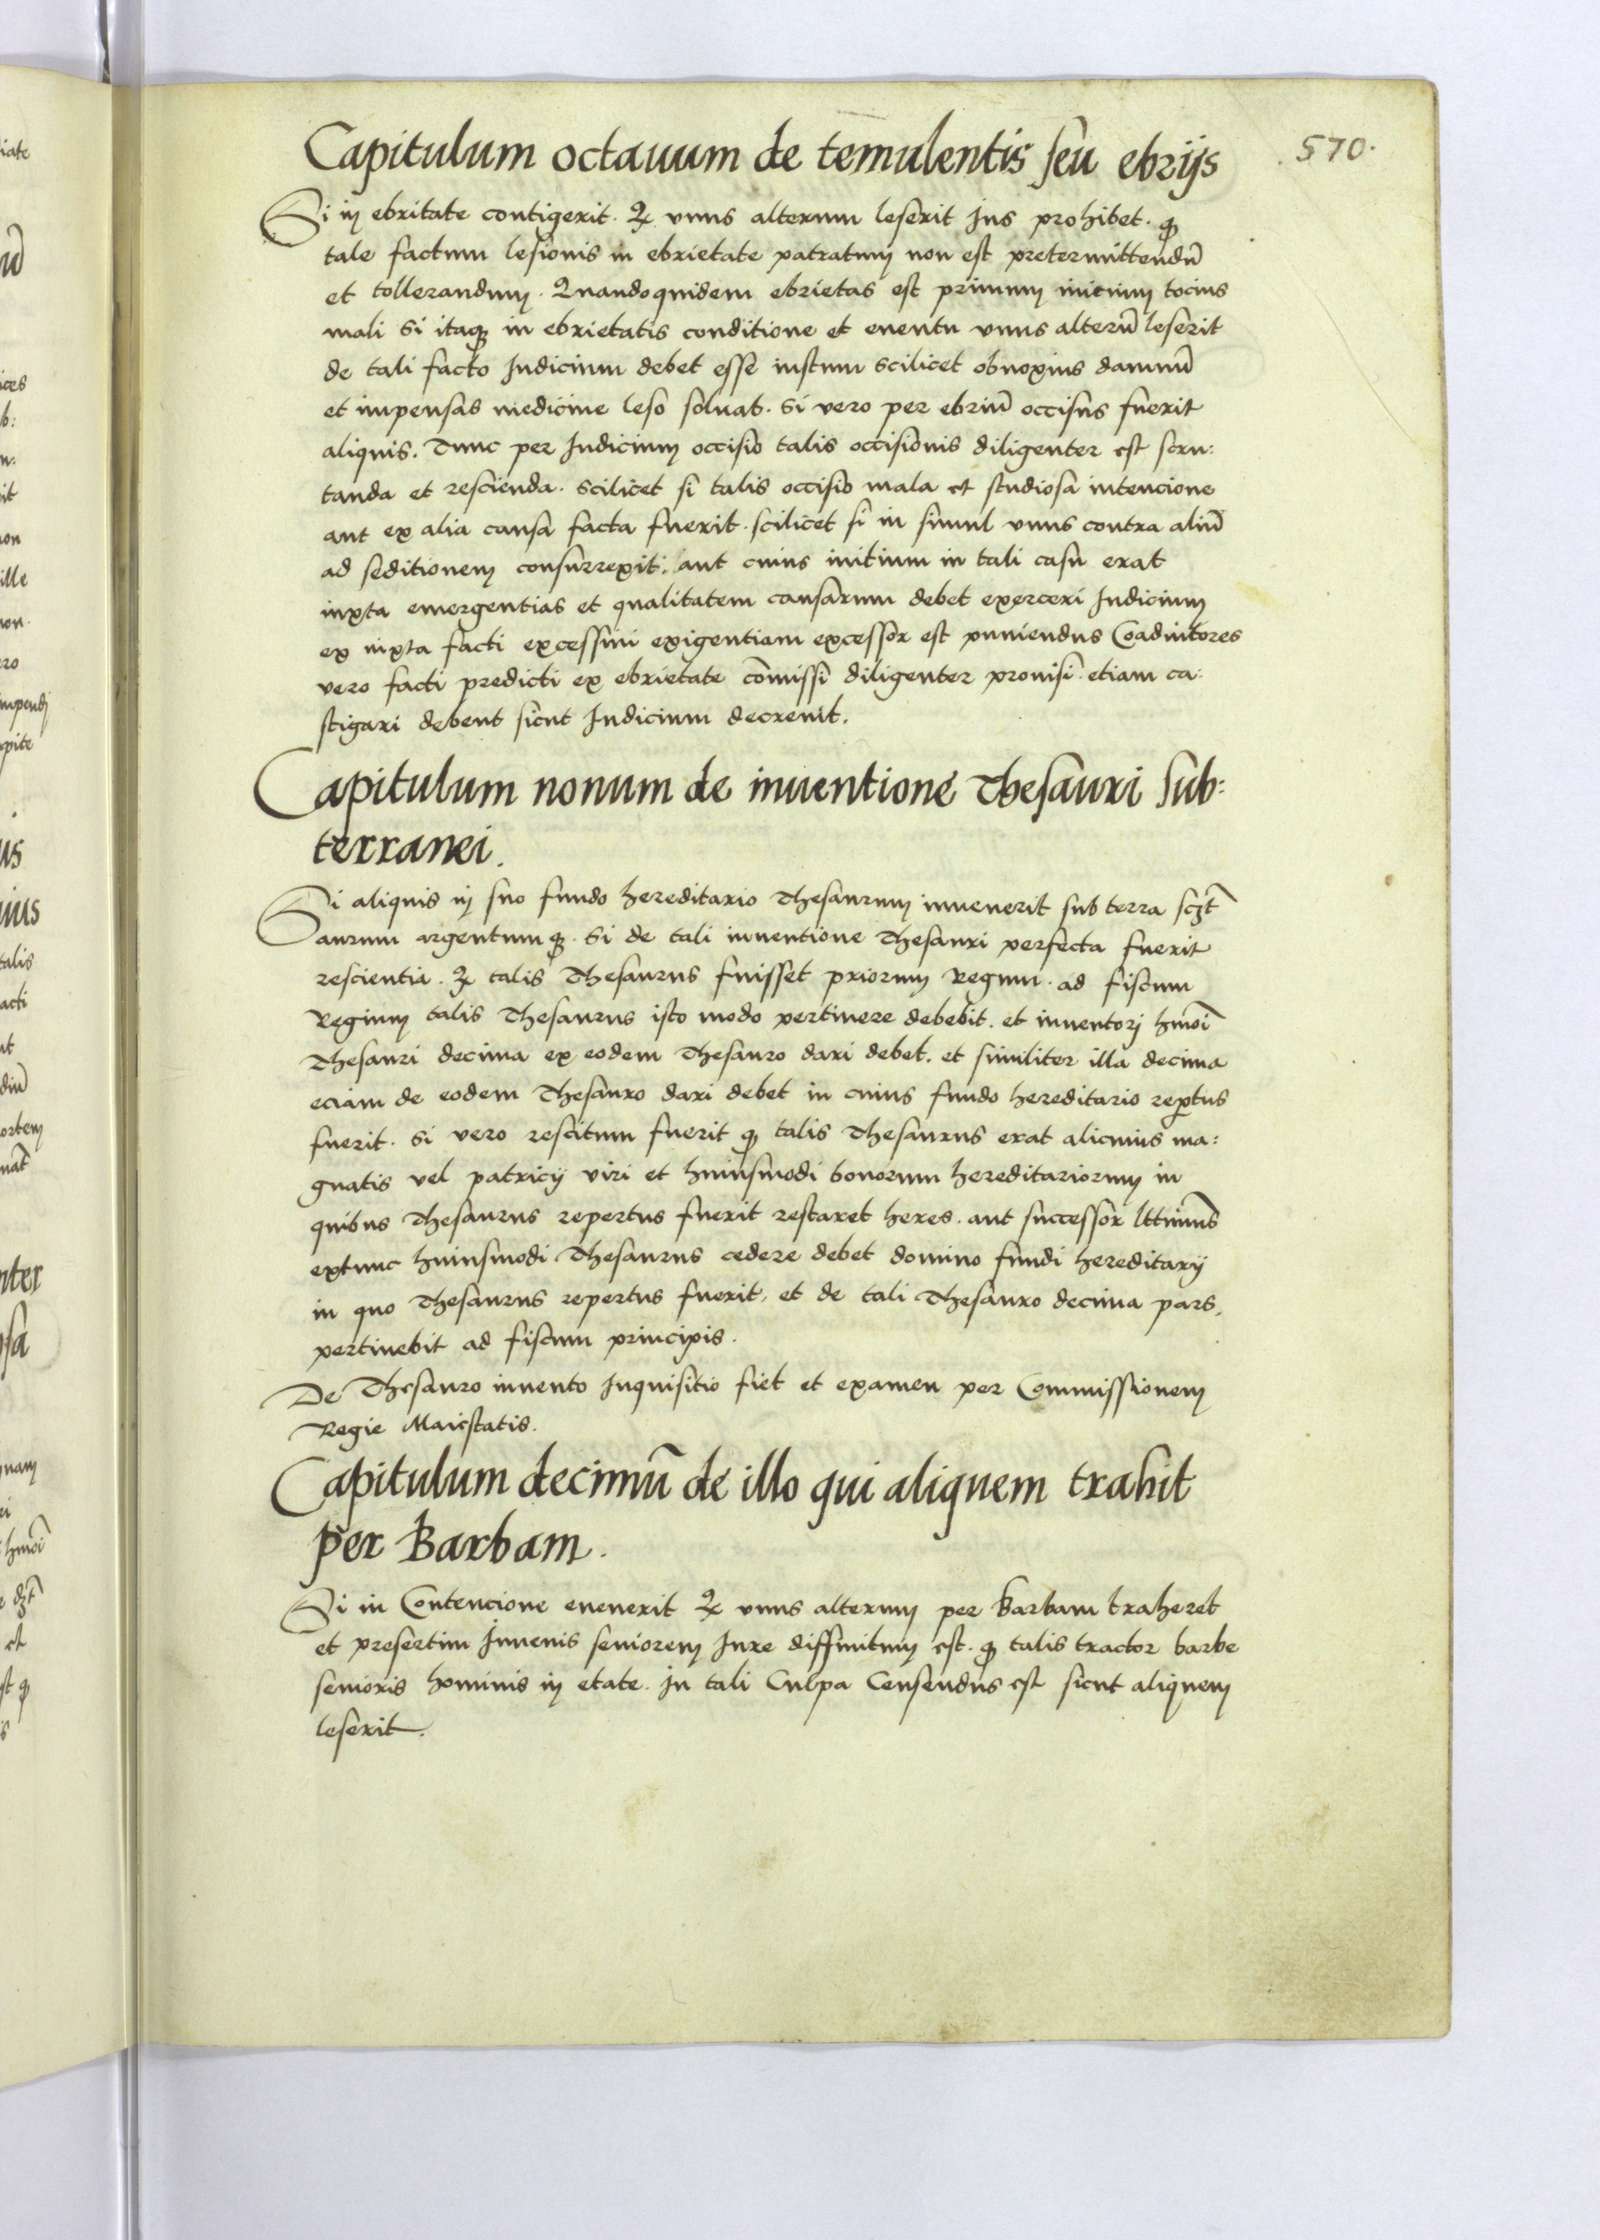 570.
Capitulum octauum de temulentis seu ebrijs
Si in ebritate contigerit. Qd vnus alterum leserit Ius prohibet. qd
tale factum lesionis in ebrietate patratum non est pretermittendū
et tollerandum. Quandoquidem ebrietas est primum inicium tocius
mali Si itaqz in ebrietatis conditione et euentu vnus alterū leserit
de tali facto Iudicium debet esse iustum scilicet obnoxius damnū
et impensas medicine leso soluat. Si vero per ebriū occisus fuerit
aliquis. Tunc per Iudicium occisio talis occisionis diligenter est scru:
tanda et rescienda. scilicet si talis occisio mala et studiosa intencione
aut ex alia causa facta fuerit. scilicet si in simul vnus contra aliū
ad seditionem consurrexit. aut cuius initium in tali casu erat
iuxta emergentias et qualitatem causarum debet exerceri Iudicium
ex iuxta facti excessiui exigentiam excessor est puniendus Coadiutores
vero facti predicti ex ebrietate cōmissi diligenter prouisi. etiam ca:
stigari debent sicut Iudicium decreuit.
Capitulum nonum de inuentione Thesauri sub:
terranei.
Si aliquis in suo fundo hereditario Thesaurum inuenerit sub terra sczt
aurum argentumqz. Si de tali inuentione Thesauri perfecta fuerit
rescientia. Qd talis Thesaurus fuisset priorum Regum. ad fiscum
Regium talis Thesaurus isto modo pertinere debebit. et inuentori hmōi
Thesauri decima ex eodem Thesauro dari debet. et similiter illa decima
eciam de eodem Thesauro dari debet in cuius fundo hereditario reptus
fuerit. Si vero rescitum fuerit qd talis Thesaurus erat alicuius ma:
gnatis vel patricij viri et huiusmodi bonorum hereditariorum in
quibus Thesaurus repertus fuerit restaret heres. aut successor lttimus
extunc huiusmodi Thesaurus cedere debet domino fundi hereditarij
in quo Thesaurus repertus fuerit. et de tali Thesauro decima pars.
pertinebit ad fiscum principis.
De Thesauro inuento Inquisitio fiet et examen per Commissionem
Regie Maiestatis.
Capitulum decimū de illo qui aliquem trahit
per Barbam.
Si in Contencione euenerit Qd vnus alterum per Barbam traheret
et presertim Iuuenis seniorem Iure diffinitum est. qd talis tractor barbe
senioris hominis in etate. In tali Culpa Censendus est sicut aliquem
leserit.